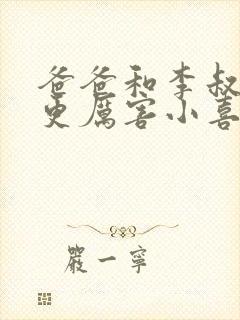 爸爸和李叔
更厲害小喜
嚴一寧